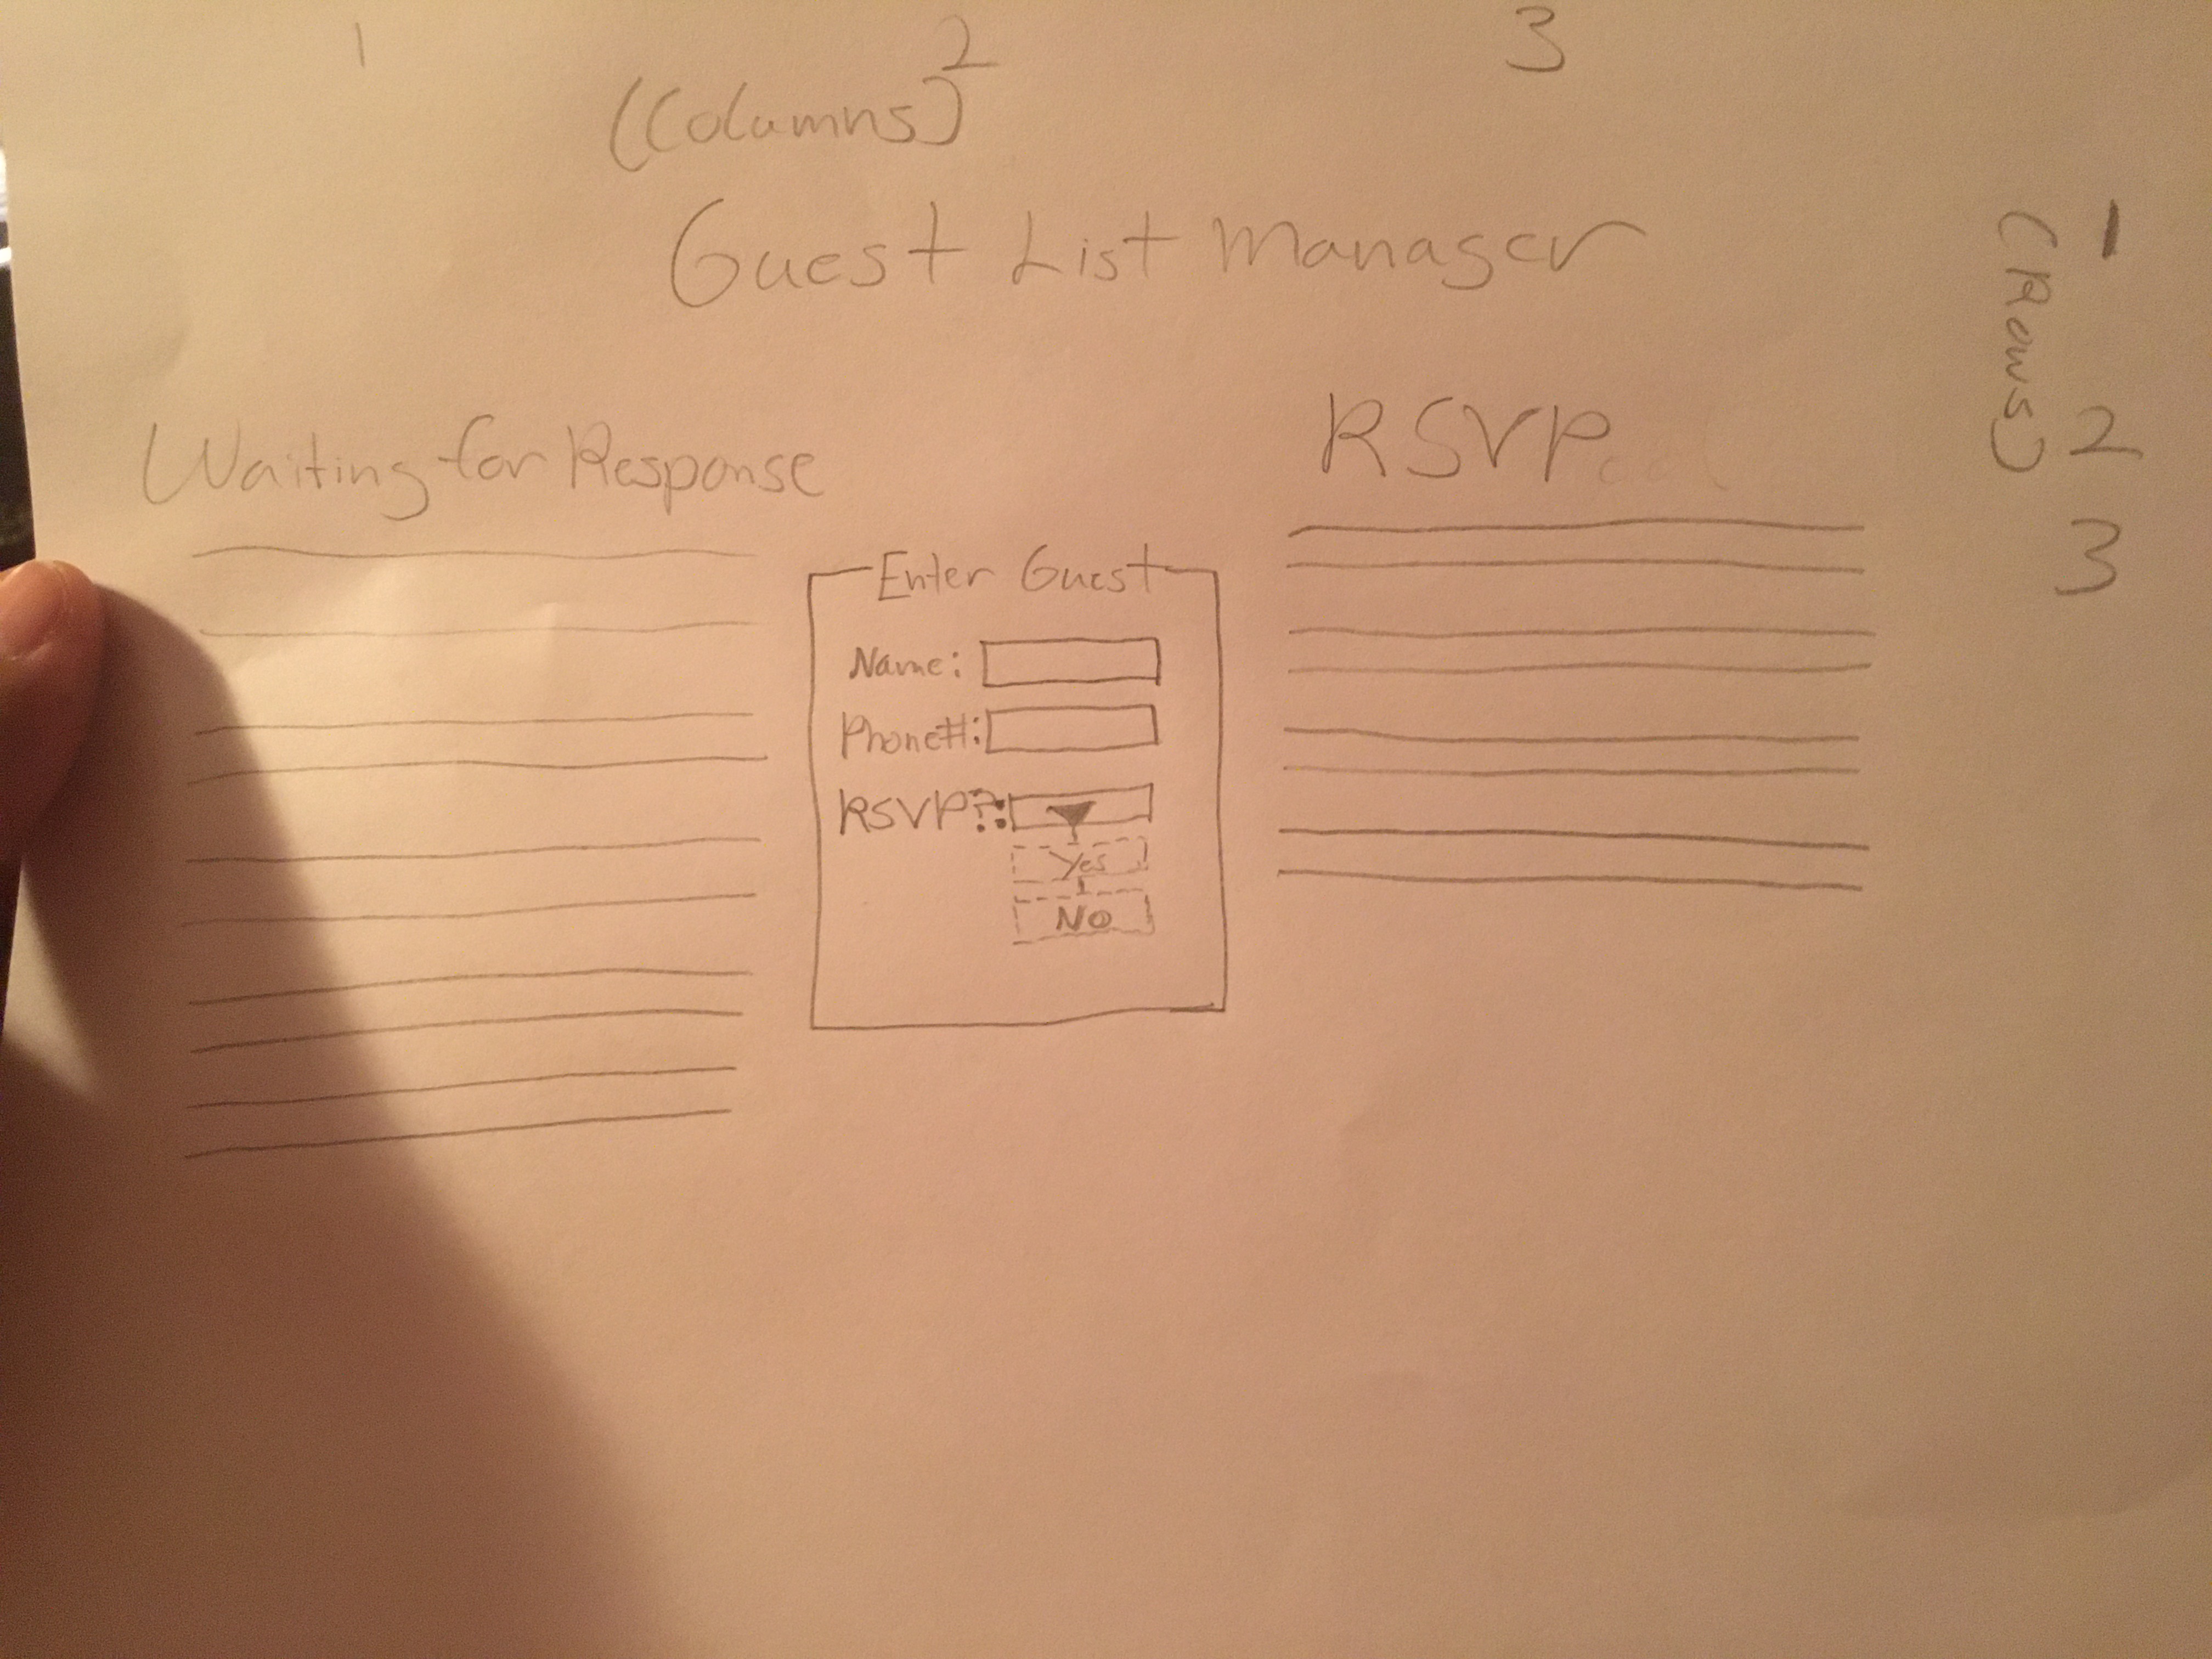 1 2 3
(Columns)
Guest List Manager
1
(Rows)
2
3
Waiting for Response
RSVP
Enter Guest
Name:
Phone#:
RSVP?:
Yes
No